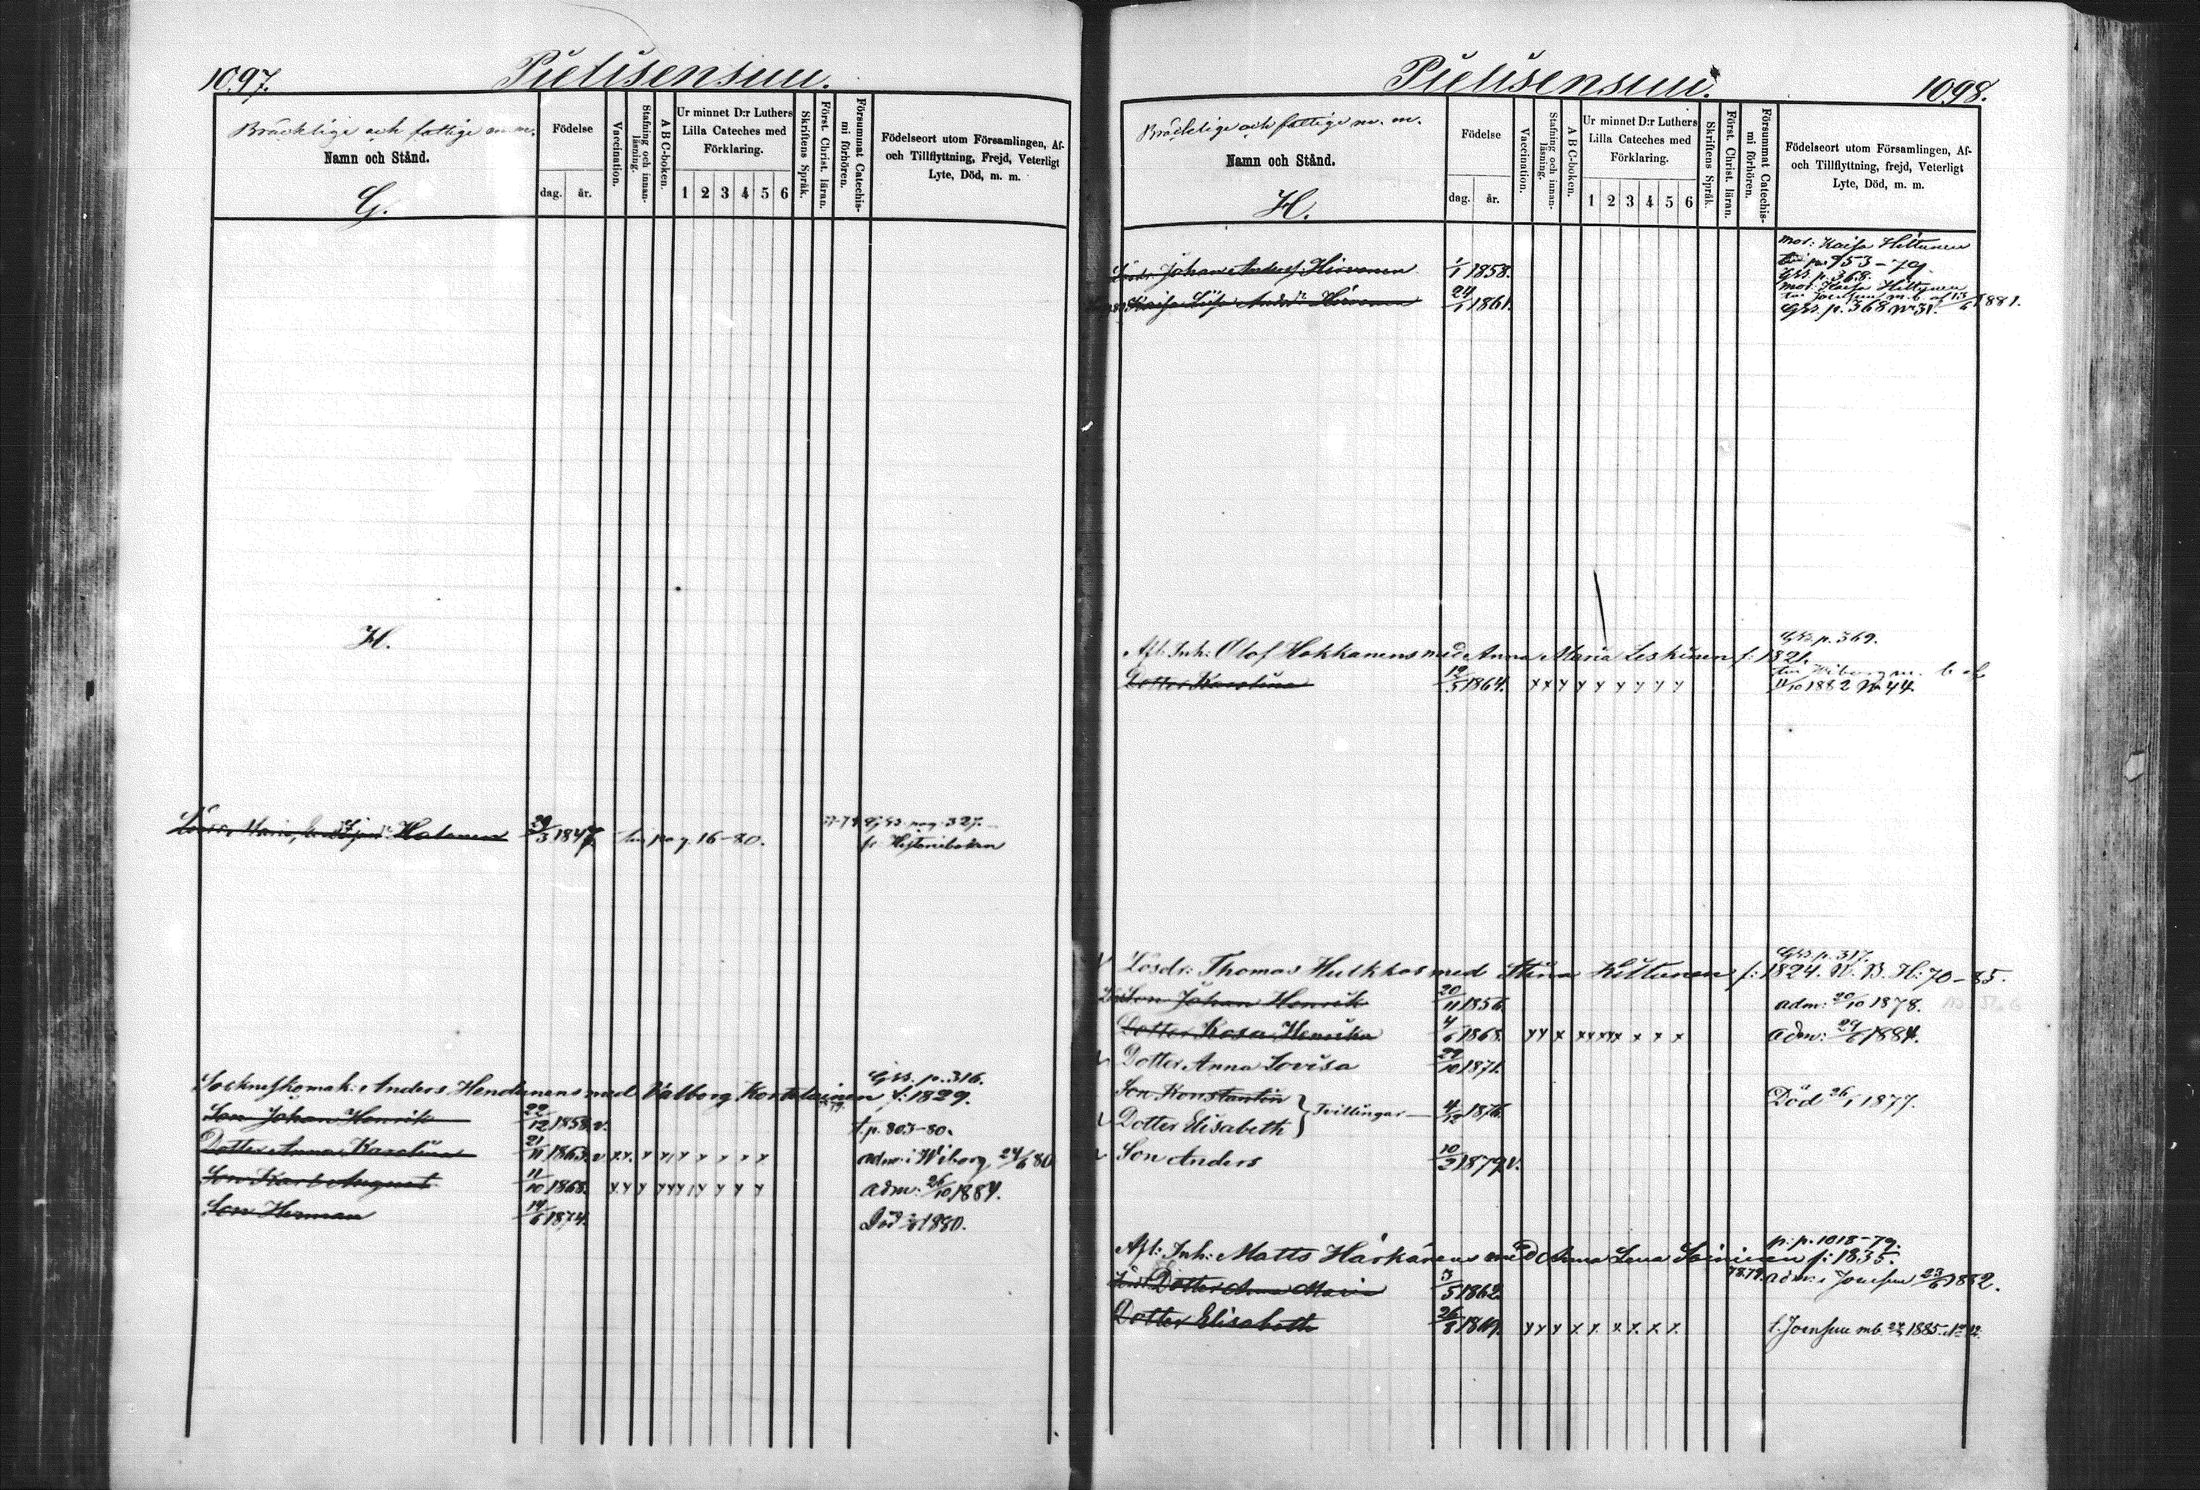 1097.
Pielisensuu.
Bräcklige och fattige m. m.
Namn och Stånd.
Födelse
dag. år.
Vaccination.
Stafning och innanläsning.
A B C-boken.
Ur minnet D:r Luthers
Lilla Cateches med
Förklaring.
1 2 3 4 5 6
Skriftens Språk.
Först. Christ. läran.
Försummat Catechismi förhören.
Födelseort utom Församlingen, Af-
och Tillflyttning, Frejd, Veterligt
Lyte, Död, m. m.
G.
H.
Maria Halonen 29/3 1847 pag 16-80. pag. 327.
Historieboken
Grs. p. 316.
Socknefkomak: Anders Hendunens med Valborg Kortelainen f: 1829.
Son Johan Henrik 22/12 1858. v. t. p. 803-80.
Dotter Anna Karolina 21/11 1863. v x x x x x x x x x adm: i Wiborg 24/6 80
Son Karl August 11/10 1868. adm: 26/10 1884.
Son Herman 14/6 1874. Död 1880.
Pielisensuu.
1098.
Bräcklige och fattige m. m.
Namn och Stånd.
Födelse
dag. år.
Vaccination.
Stafning och innanläsning.
A B C-boken.
Ur minnet D:r Luthers
Lilla Cateches med
Förklaring.
1 2 3 4 5 6
Skriftens Språk.
Först. Christ. läran.
Försummat Catechismi förhören.
Födelseort utom Församlingen, Af-
och Tillflyttning, frejd, Veterligt
Lyte, Död, m. m.
H.
mor: Kaisa Hiltunen
Johan Andersf. Hirvonen 1/1 1858. 953-79.
Grs. p. 368.
mor: Kaisa Hiltunen
Kaisa Lisa Hirvonen 24/1 1861. Joensuu m. b. af 13/6 1881.
Grs. p. 368
Grs. p. 369.
Afl: Inh: Olof Hakkanens med Anna Maria Leskinen f: 1821.
Dotter Karolina 19/5 1864. x x x x x x x x x Wiborg m. b af
11/10 1882 No 44.
Grs. p. 317.
Lösdr: Thomas Hulkkos med Stina Kettunen f: 1824. N. B. H: 70-85.
Son Johan Henrik 20/11 1856. adm: 20/10 1878.
Dotter Rosa Henrika 4/6 1868. adm: 29/6 1884.
Dotter Anna Lovisa 27/10 1871.
Son Konstantin } Tvillingar 4/12 1876. Död 26/1 1877.
Dotter Elisabeth
Son Anders 10/2 1879 v.
p. p. 1018-79.
Afl: Inh: Matts Härkänens med Anna Lena Soininen f: 1835.
Dotter Anna Maria 3/5 1862. 78.79. adm: i Joensuu 23/6 1882.
Dotter Elisabeth 26/8 1869. x x x x x x x x x t. Joensuu mb. 1885.